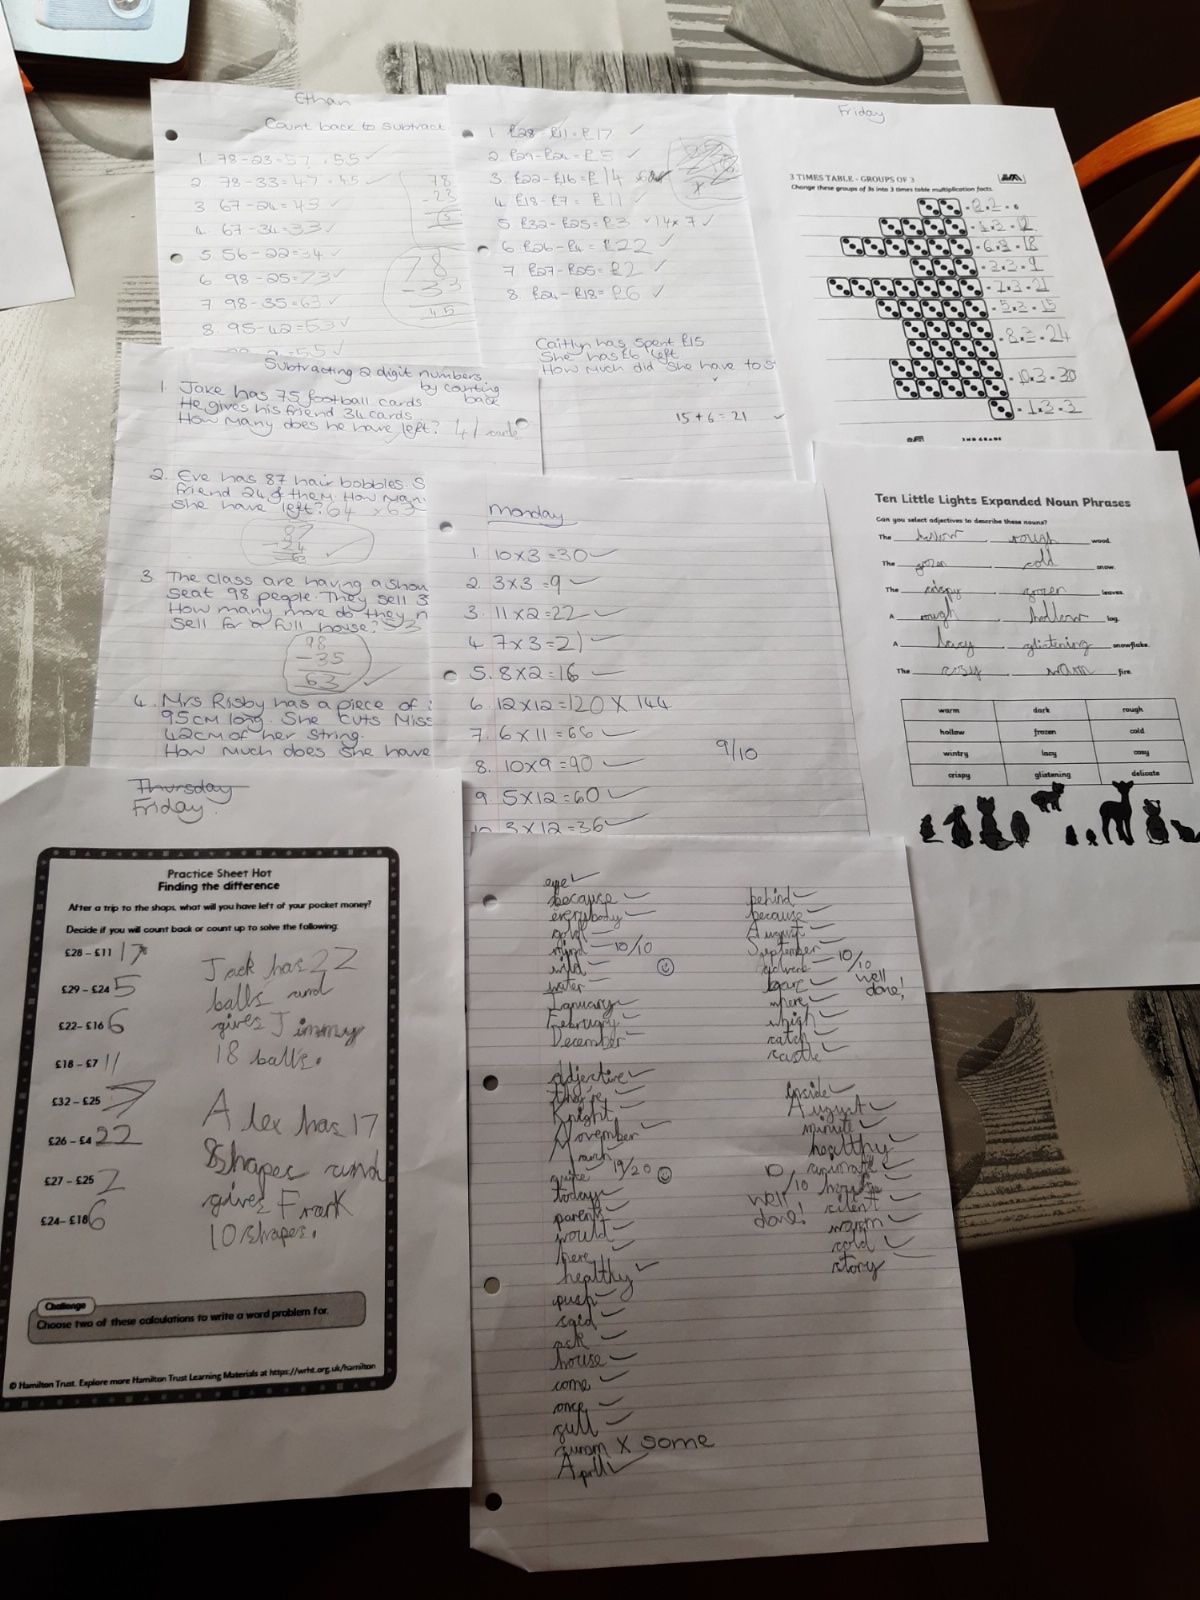 Ethan
Count back to subtract
1. 78-23=57 . 55 ✓
2. 78-33=47 x 45 ✓
3 67-24=43 ✓
4. 67-34=33 ✓
5. 56-22=34 ✓
6 98-25=73 ✓
7 98-35=63 ✓
8. 95-42=53 ✓
=55 ✓
78
-23
78
-33
45
1. £28-£11=£17 ✓
2. £29-£24=£5 ✓
3. £22-£16=£14
4. £18-£7=£11 ✓
5 £32-£25=£3 x 14 x 7 ✓
6 £26-£4=£22 ✓
7 £27-£25=£2 ✓
8. £24-£18=£6 ✓
Caitlyn has spent £15
She has £6 left
How much did she have to s
15+6=21 ✓
Friday
3 TIMES TABLE - GROUPS OF 3
Change these groups of 3s into 3 times table multiplication facts.
6.3=18
3.3=9
7.3=21
5.3=15
8.3=24
10.3=30
1.3=3
2ND GRADE
Subtracting 2 digit numbers
by counting
back
1. Jake has 75 football cards
He gives his friend 34 cards.
How many does he have left? 41 cards
2. Eve has 87 hair bobbles. S
friend 24 of them. How man
she have left? 64 x 63
87
-24
63
✓
3. The class are having a show
seat 98 people. They sell 3
How many more do they n
sell for a full house? 53
98
-35
63
✓
4. Mrs Risby has a piece of
95cm long. She cuts Miss
42cm of her string.
How much does she have
Monday
1. 10x3=30 ✓
2. 3x3=9 ✓
3. 11x2=22 ✓
4. 7x3=21 ✓
5. 8x2=16 ✓
6. 12x12=120 X 144
7. 6x11=66 ✓
8. 10x9=90 ✓
9. 5x12=60 ✓
10. 3x12=36 ✓
9/10
Ten Little Lights Expanded Noun Phrases
Can you select adjectives to describe these nouns?
The hollow, rough wood.
The frozen, cold snow.
The crispy, frozen leaves.
A rough, hollow log.
A lacy, glistening snowflake.
The cosy, warm fire.
warm dark rough
hollow frozen cold
wintry lacy cosy
crispy glistening delicate
Thursday
Friday
Practice Sheet Hot
Finding the difference
After a trip to the shops, what will you have left of your pocket money?
Decide if you will count back or count up to solve the following:
£28 – £11 17
£29 – £24 5
£22– £16 6
£18 – £7 11
£32 – £25 7
£26 – £4 22
£27 – £25 2
£24– £18 6
Jack has 22
balls and
gives Jimmy
18 balls.
Alex has 17
shapes and
gives Frank
10 shapes.
Challenge
Choose two of these calculations to write a word problem for.
© Hamilton Trust. Explore more Hamilton Trust Learning Materials at https://wrht.org.uk/hamilton
eye ✓
because ✓
everybody ✓
gold ✓
mind ✓ 10/10
wild ✓
water ✓
January ✓
February ✓
December ✓
adjective ✓
Knight ✓
November ✓
March ✓
quite ✓ 19/20
today ✓
parents ✓
would ✓
here ✓
healthy ✓
push ✓
said ✓
ask ✓
house ✓
come ✓
once ✓
full ✓
X some
April ✓
behind ✓
because ✓
August ✓
September ✓
10/10
well
done!
where ✓
which ✓
catch ✓
castle ✓
inside ✓
August ✓
minute ✓
healthy ✓
animals ✓
10/10
well
done!
house ✓
silent ✓
warm ✓
cold ✓
story